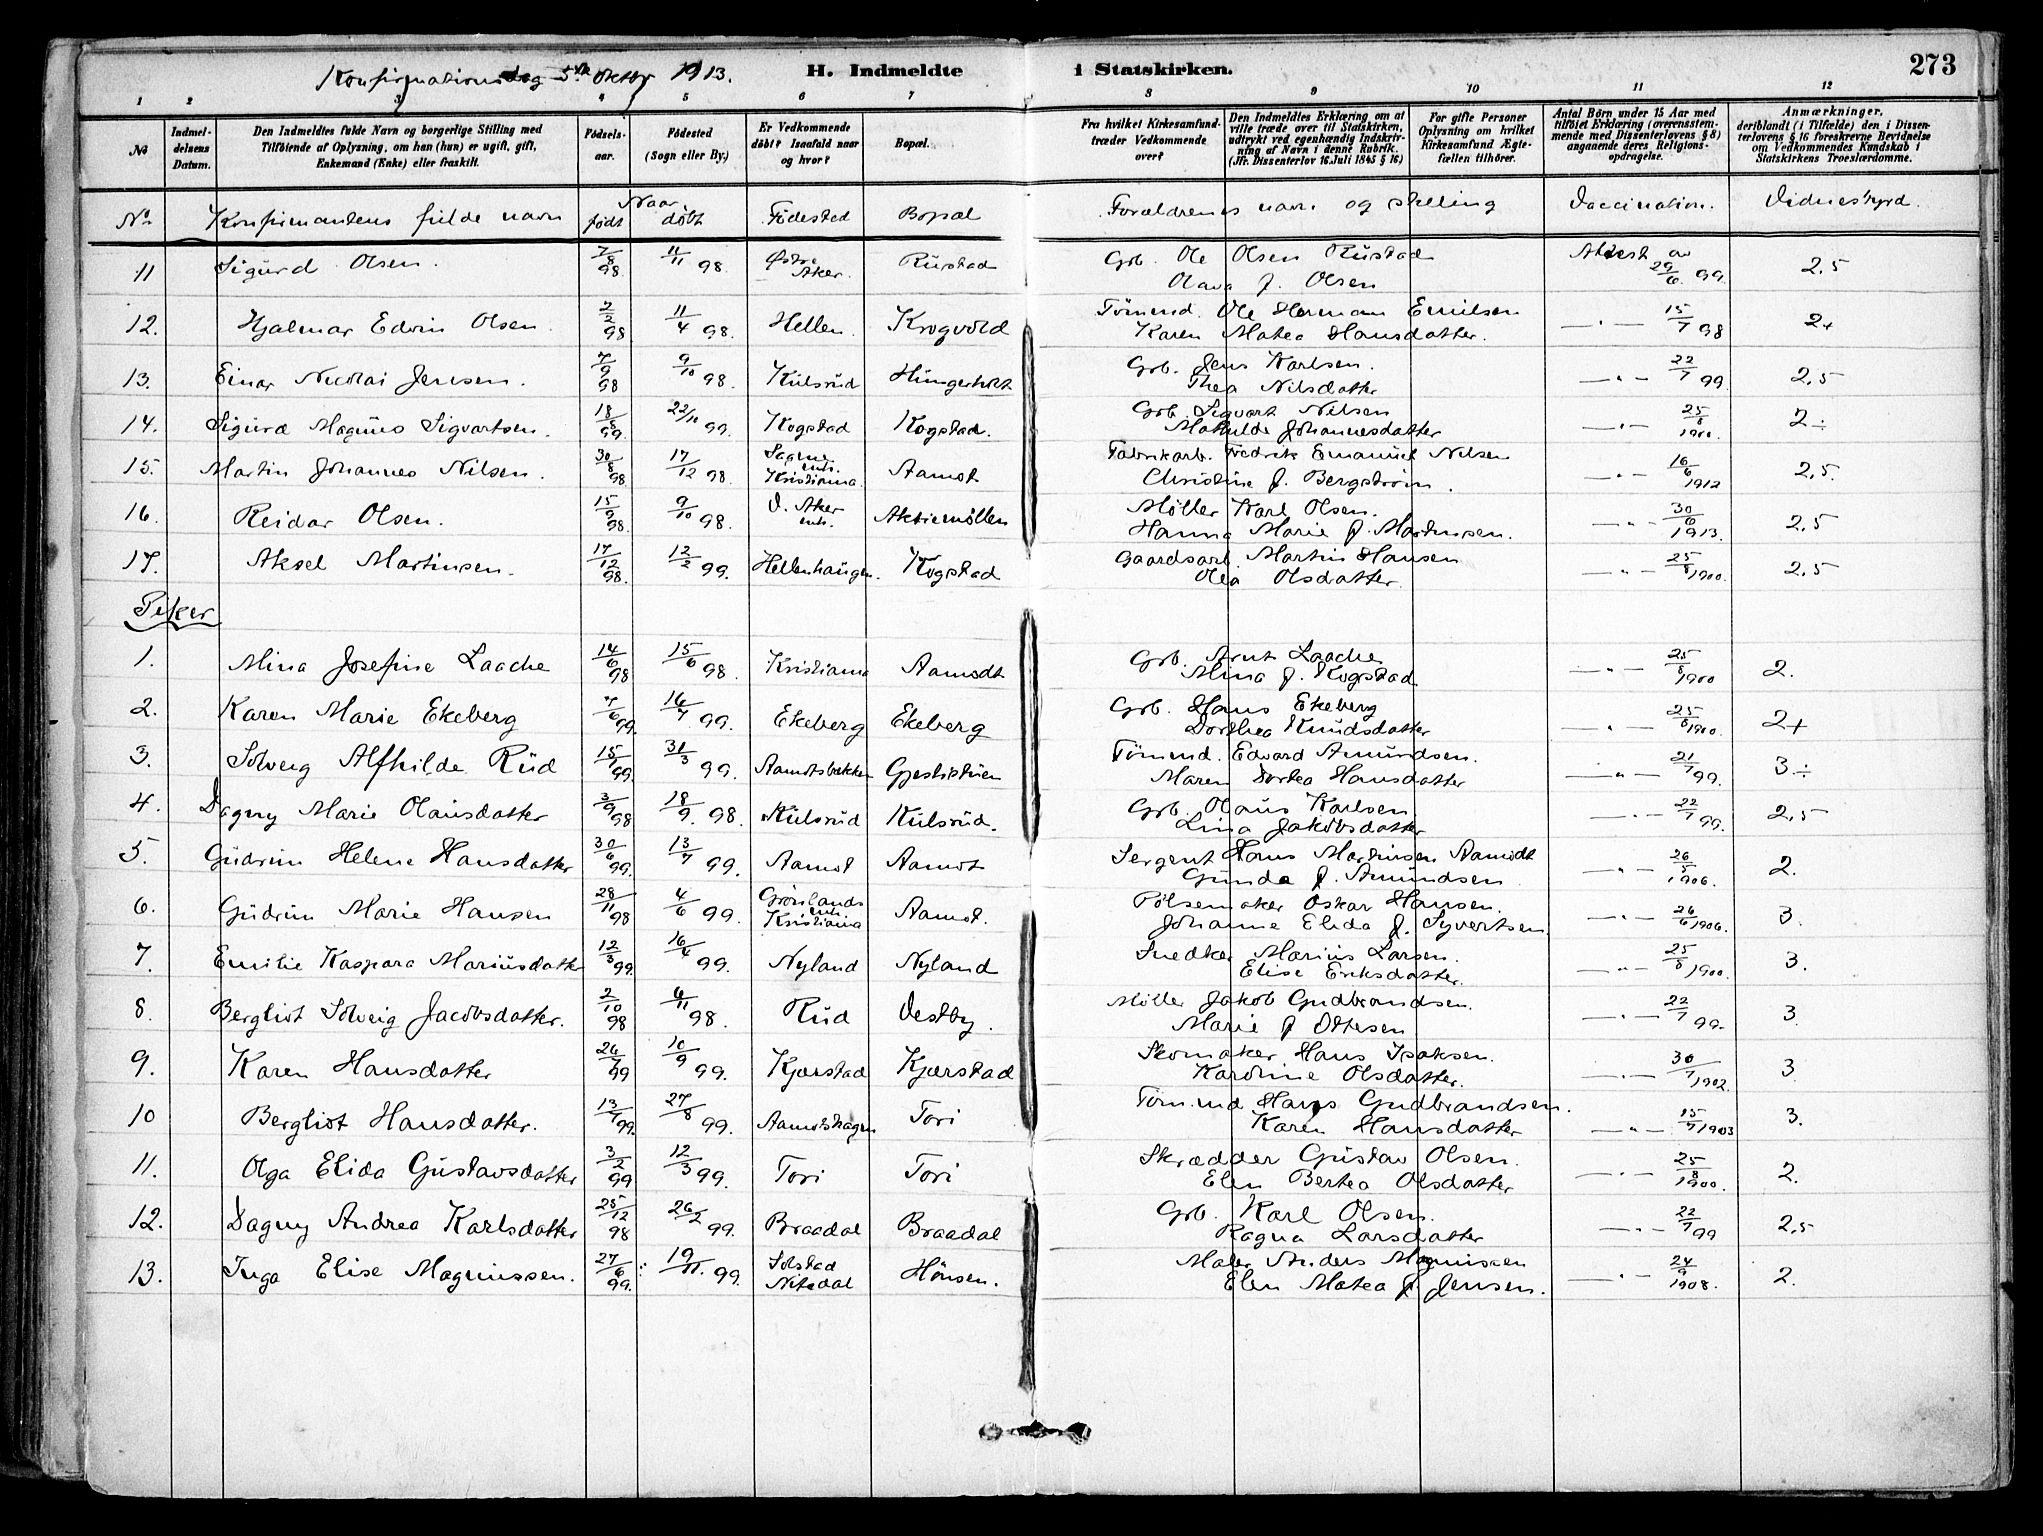 Konfirmationsdag 5te oktbr 1913. H. Indmeldte i Statskirken. 273
1 2 3 4 5 6 7 8 9 10 11 12
No Indmeldelsens Datum. Den Indmeldtes fulde Navn og borgerlige Stilling med Tilføiende af Oplysning, om han (hun) er ugift, gift, Enkemand (Enke) eller fraskilt. Fødselsaar. Fødested (Sogn eller By.) Er Vedkommende døbt? Isaafald naar og hvor? Bopæl. Fra hvilket Kirkesamfund træder Vedkommende over? Den Indmeldtes Erklæring om at ville træde over til Statskirken, udtrykt ved egenhændig Indskrivning af Navn i denne Rubrik. (Jfr. Dissenterlov 16 Juli 1845 § 16) For gifte Personer Oplysning om hvilket Kirkesamfund Ægtefællen tilhører. Antal Børn under 15 Aar med tilføiet Erklæring (overensstemmende med Dissenterlovens § 8) angaaende deres Religionsopdragelse. Anmærkninger, deriblandt (i Tilfælde) den i Dissenterlovens § 16 foreskrevne Bevidnelse om Vedkommendes Kundskab i Statskirkens Troeslærdomme.
No Konfirmantens fulde navn Naar født døbt Fødested Bopæl Forældrenes navn og stilling Vaccination. Vidnesbyrd.
11 Sigurd Olsen. 7/8 98 11/11 98. Østre Aker. Rustad Grb. Ole Olsen Rustad Olava f. Olsen Attest av 29/6 99. 2,5
12. Hjalmar Edvin Olsen. 2/2 98 11/4 98. Hellen. Krogvold Tømmd. Ole Herman Emilsen Karen Matea Hansdatter. — " — 15/7 98 2+
13. Einar Nicolai Jensen. 7/9 98 9/10 98. Kulsrud Hungerholt Grb. Jens Karlsen. Thea Nilsdatter — " — 22/7 99. 2,5
14. Sigurd Magnus Sigvartsen. 18/8 99. 22/11 99. Kogstad Kogstad. Grb. Sigvart Nilsen Mathilde Johannesdatter — " — 25/8 1900. 2÷
15. Martin Johannes Nilsen. 30/8 98. 17/12 98 Sagene mh. Kristiania. Aamot Fabrikarb. Fredrik Emanuel Nilsen Christine f. Bergstrøm. — " — 16/6 1912 2,5.
16. Reidar Olsen. 15/9 98. 9/10 98. V. Aker mh. Aktiemøllen Møller Karl Olsen. Hanna Marie f. Martinsen. — " — 30/6 1913. 2,5
17. Aksel Martinsen. 17/12 98. 12/2 99. Hellenhaugen. Kogstad Gaardsarb. Martin Hansen Olea Olsdatter. — " — 25/8 1900. 2,5
Piker
1. Mina Josefine Laache 14/6 98 15/6 98. Kristiania Aamodt Grb. Arnt Laache Mina f. Kogstad — " — 25/8 1900 2.
2. Karen Marie Ekeberg 7/6 99. 16/7 99. Ekeberg Ekeberg Grb. Hans Ekeberg Dorthea Knudsdatter — " — 25/8 1900. 2+
3. Solveig Alfhilde Rud 15/1 99. 31/3 99. Aamotsbakken Gjestistuen Tømmd. Edvard Amundsen. Maren Dortea Hansdatter — " — 21/7 99. 3÷
4. Dagny Marie Olausdatter 3/9 98 18/9 98. Kulsrud Kulsrud. Grb. Olaus Karlsen Lina Jakobsdatter — " — 22/7 99. 2,5
5. Gudrun Helene Hansdatter 30/6 99. 13/7 99. Aamot Aamot Sergent Hans Martinsen Aamodt Gunda f. Amundsen — " — 26/5 1906. 2.
6. Gudrun Marie Hansen 28/11 98 4/6 99. Grønlands mh. Kristiania Aamot. Pølsemaker Oskar Hansen. Johanne Elida f. Syvertsen. — " — 26/6 1906. 3.
7. Emilie Kaspara Mariusdatter 12/3 99. 16/4 99. Nyland Nyland Snedker Marius Larsen. Elise Eriksdatter. — " — 25/8 1900. 3.
8. Bergliot Solveig Jacobsdatter. 2/10 98 6/11 98. Rud Vestby. Møller Jakob Gudbrandsen. Marie f Ottesen — " — 22/7 99. 3.
9. Karen Hansdatter 26/7 99 10/9 99. Kjærstad Kjærstad Skomaker Hans Isaksen. Karoline Olsdatter. — " — 30/7 1902. 3
10 Bergliot Hansdatter. 13/7 99. 27/8 99. Aamotshagen Tori Tømmd Hans Gudbrandsen. Karen Hansdatter — " — 15/7 1903 3.
11. Olga Elida Gustavsdatter 3/2 99 12/3 99. Tori Tori Skrædder Gustav Olsen. Elen Bertea Olsdatter — " — 25/8 1900. 2.
12. Dagny Andrea Karlsdatter 25/12 98 26/2 99. Braadal Braadal Grb. Karl Olsen. Ragna Larsdatter — " — 22/7 99 2,5
13. Inga Elise Magnussen. 27/6 99. 19/11. 99. Solstad Nitedal Hönsen. Maler Anders Magnussen Elen Matea f. Jensen. — " — 24/9 1908. 2.